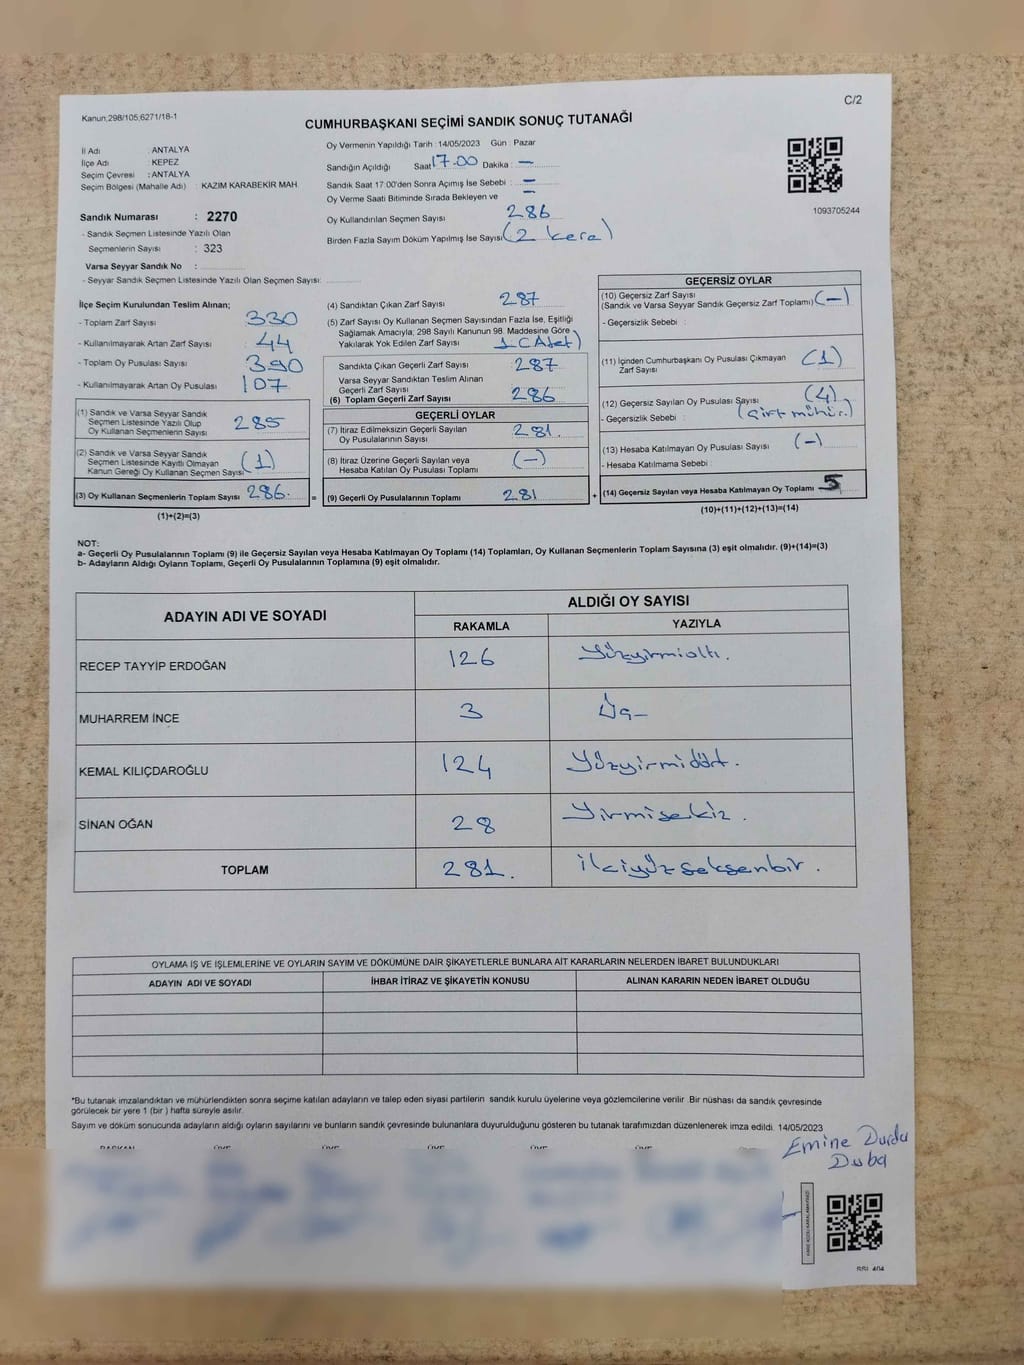 C/2
Kanun;298/105;6271/18-1
CUMHURBAŞKANI SEÇİMİ SANDIK SONUÇ TUTANAĞI
İl Adı : ANTALYA
İlçe Adı : KEPEZ
Seçim Çevresi : ANTALYA
Seçim Bölgesi (Mahalle Adı) : KAZIM KARABEKİR MAH.
Sandık Numarası : 2270
- Sandık Seçmen Listesinde Yazılı Olan
Seçmenlerin Sayısı : 323
Varsa Seyyar Sandık No :
- Seyyar Sandık Seçmen Listesinde Yazılı Olan Seçmen Sayısı:
Oy Vermenin Yapıldığı Tarih : 14/05/2023 Gün : Pazar
Sandığın Açıldığı Saat 17.00 Dakika : —
Sandık Saat 17:00'den Sonra Açımış İse Sebebi : —
Oy Verme Saati Bitiminde Sırada Bekleyen ve —
Oy Kullandırılan Seçmen Sayısı 286
Birden Fazla Sayım Döküm Yapılmış İse Sayısı (2 kere)
1093705244
İlçe Seçim Kurulundan Teslim Alınan;
- Toplam Zarf Sayısı 330
- Kullanılmayarak Artan Zarf Sayısı : 44
- Toplam Oy Pusulası Sayısı : 390
- Kullanılmayarak Artan Oy Pusulası : 107
(1) Sandık ve Varsa Seyyar Sandık
Seçmen Listesinde Yazılı Olup
Oy Kullanan Seçmenlerin Sayısı 285
(2) Sandık ve Varsa Seyyar Sandık
Seçmen Listesinde Kayıtlı Olmayan
Kanun Gereği Oy Kullanan Seçmen Sayısı (1)
(3) Oy Kullanan Seçmenlerin Toplam Sayısı 286. =
(1)+(2)=(3)
(4) Sandıktan Çıkan Zarf Sayısı 287
(5) Zarf Sayısı Oy Kullanan Seçmen Sayısından Fazla İse, Eşitliği
Sağlamak Amacıyla, 298 Sayılı Kanunun 98. Maddesine Göre
Yakılarak Yok Edilen Zarf Sayısı : 1 (Adet)
Sandıkta Çıkan Geçerli Zarf Sayısı : 287
Varsa Seyyar Sandıktan Teslim Alınan
Geçerli Zarf Sayısı
(6) Toplam Geçerli Zarf Sayısı 286
GEÇERLİ OYLAR
(7) İtiraz Edilmeksizin Geçerli Sayılan
Oy Pusulalarının Sayısı 281.
(8) İtiraz Üzerine Geçerli Sayılan veya
Hesaba Katılan Oy Pusulası Toplamı (-)
(9) Geçerli Oy Pusulalarının Toplamı 281 +
GEÇERSİZ OYLAR
(10) Geçersiz Zarf Sayısı
(Sandık ve Varsa Seyyar Sandık Geçersiz Zarf Toplamı) (-)
- Geçersizlik Sebebi :
(11) İçinden Cumhurbaşkanı Oy Pusulası Çıkmayan
Zarf Sayısı (1)
(12) Geçersiz Sayılan Oy Pusulası Sayısı (4)
- Geçersizlik Sebebi : (Çift mühür.)
(13) Hesaba Katılmayan Oy Pusulası Sayısı (-)
- Hesaba Katılmama Sebebi :
(14) Geçersiz Sayılan veya Hesaba Katılmayan Oy Toplamı 5
(10)+(11)+(12)+(13)=(14)
NOT:
a- Geçerli Oy Pusulalarının Toplamı (9) ile Geçersiz Sayılan veya Hesaba Katılmayan Oy Toplamı (14) Toplamları, Oy Kullanan Seçmenlerin Toplam Sayısına (3) eşit olmalıdır. (9)+(14)=(3)
b- Adayların Aldığı Oyların Toplamı, Geçerli Oy Pusulalarının Toplamına (9) eşit olmalıdır.
ADAYIN ADI VE SOYADI
ALDIĞI OY SAYISI
RAKAMLA YAZIYLA
RECEP TAYYİP ERDOĞAN 126 Yüzyirmialtı.
MUHARREM İNCE 3 Üç—
KEMAL KILIÇDAROĞLU 124 Yüzyirmidört.
SİNAN OĞAN 28 Yirmisekiz.
TOPLAM 281. ikiyüzseksenbir.
OYLAMA İŞ VE İŞLEMLERİNE VE OYLARIN SAYIM VE DÖKÜMÜNE DAİR ŞİKAYETLERLE BUNLARA AİT KARARLARIN NELERDEN İBARET BULUNDUKLARI
ADAYIN ADI VE SOYADI İHBAR İTİRAZ VE ŞİKAYETİN KONUSU ALINAN KARARIN NEDEN İBARET OLDUĞU
*Bu tutanak imzalandıktan ve mühürlendikten sonra seçime katılan adayların ve talep eden siyasi partilerin sandık kurulu üyelerine veya gözlemcilerine verilir. Bir nüshası da sandık çevresinde
görülecek bir yere 1 (bir) hafta süreyle asılır.
Sayım ve döküm sonucunda adayların aldığı oyların sayılarını ve bunların sandık çevresinde bulunanlara duyurulduğunu gösteren bu tutanak tarafımızdan düzenlenerek imza edildi. 14/05/2023
Emine Durdu
Duba